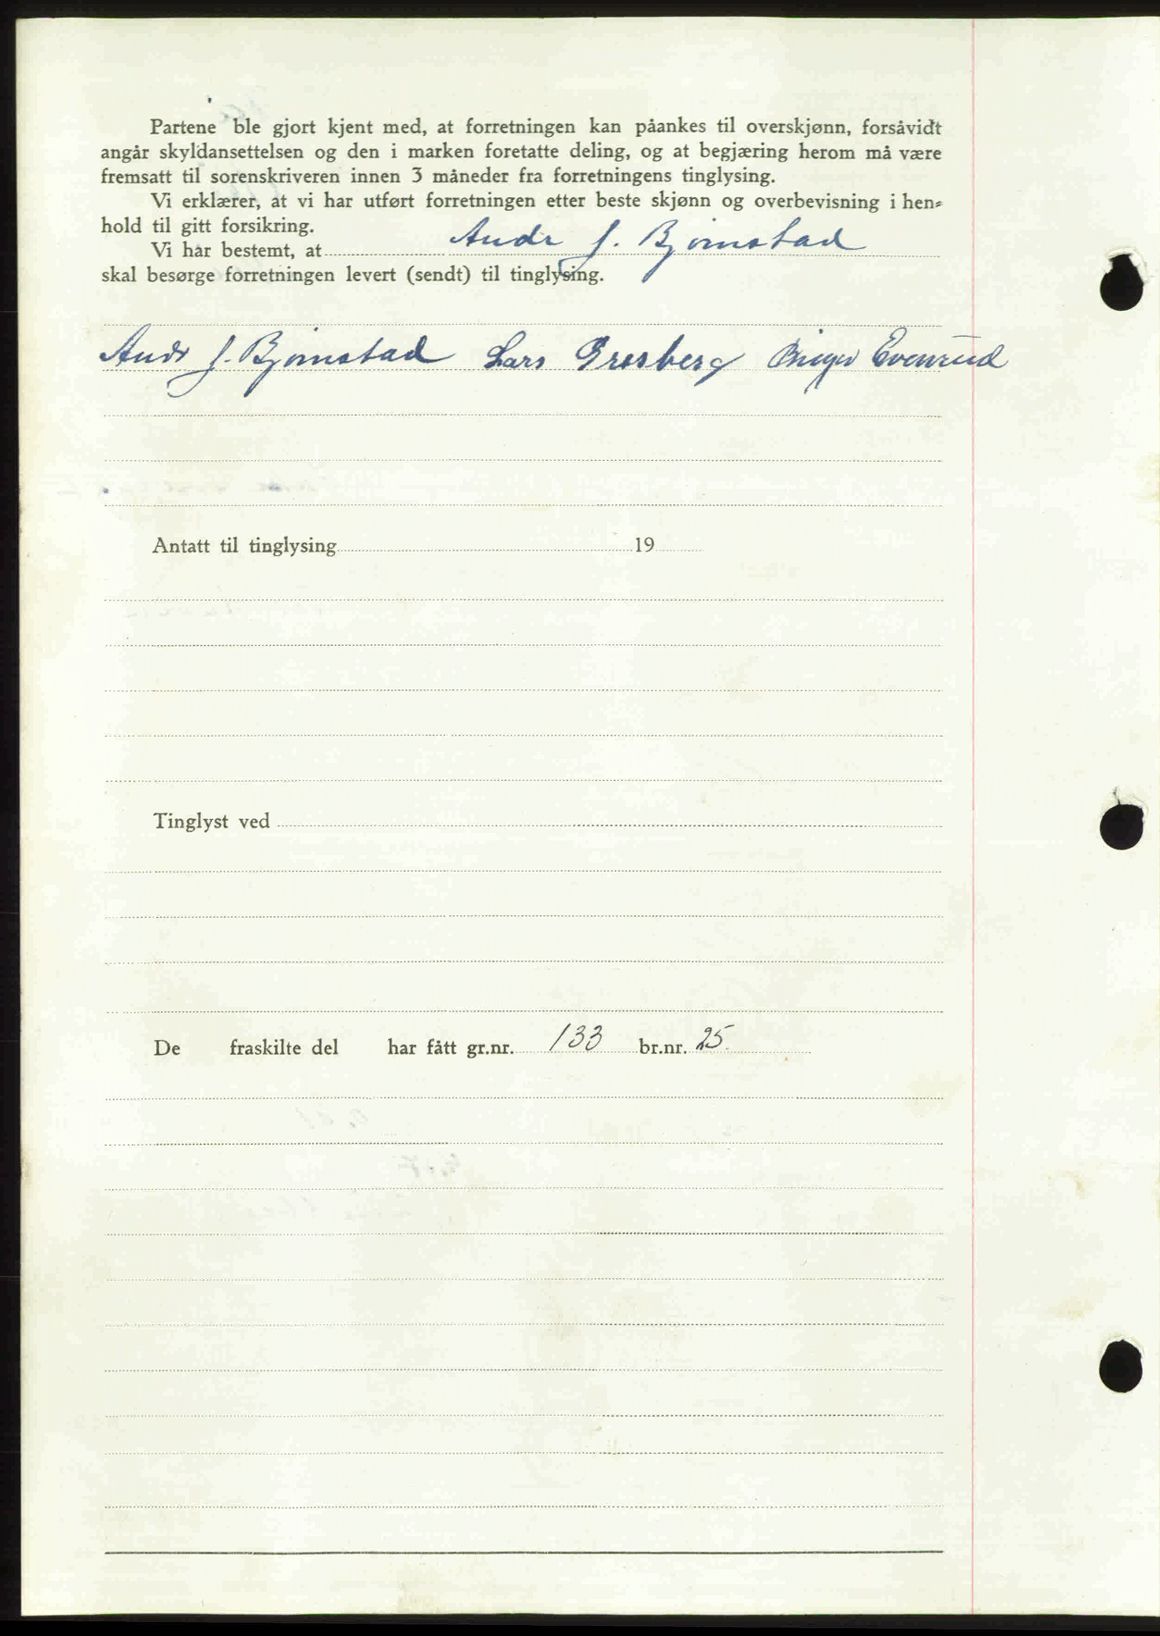 Partene ble gjort kjent med, at forretningen kan påankes til overskjønn, forsåvidt
angår skyldansettelsen og den i marken foretatte deling, og at begjæring herom må være
fremsatt til sorenskriveren innen 3 måneder fra forretningens tinglysing.
Vi erklærer, at vi har utført forretningen etter beste skjønn og overbevisning i hen-
hold til gitt forsikring.
Vi har bestemt, at Andr J. Bjørnstad
skal besørge forretningen levert (sendt) til tinglysing.
Andr J. Bjørnstad Lars Gresberg Evenrud
Antatt til tinglysing 19
Tinglyst ved
De fraskilte del har fått gr.nr. 133 br.nr. 25.